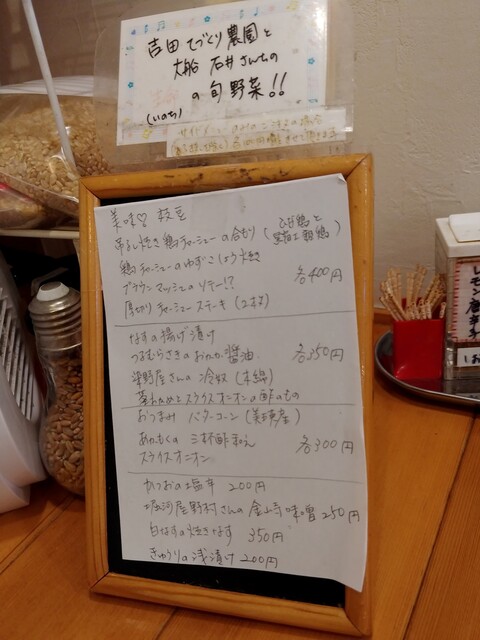 吉田 てづくり農園と
大船 石井さんちの
の旬野菜!!
(いのち)
美味♡ 枝豆
吊るし焼き鶏チャーシューの合もり (
鶏チャーシューのゆずこしょう焼き
ブラウンマッシュのソテー!?
各400円
厚切りチャーシューステーキ (2まい)
なすの揚げ漬け
つるむらさきのおかか醤油
各350円
さんの 冷奴 (木綿)
とスライスオニオンの酢のもの
おつまみ バターコーン (美瑛産)
の三杯酢和え
各300円
スライスオニオン
かつおの塩辛 200円
堀河屋野村さんの金山寺味噌 250円
白なすの焼きなす 350円
きゅうりの浅漬け 200円